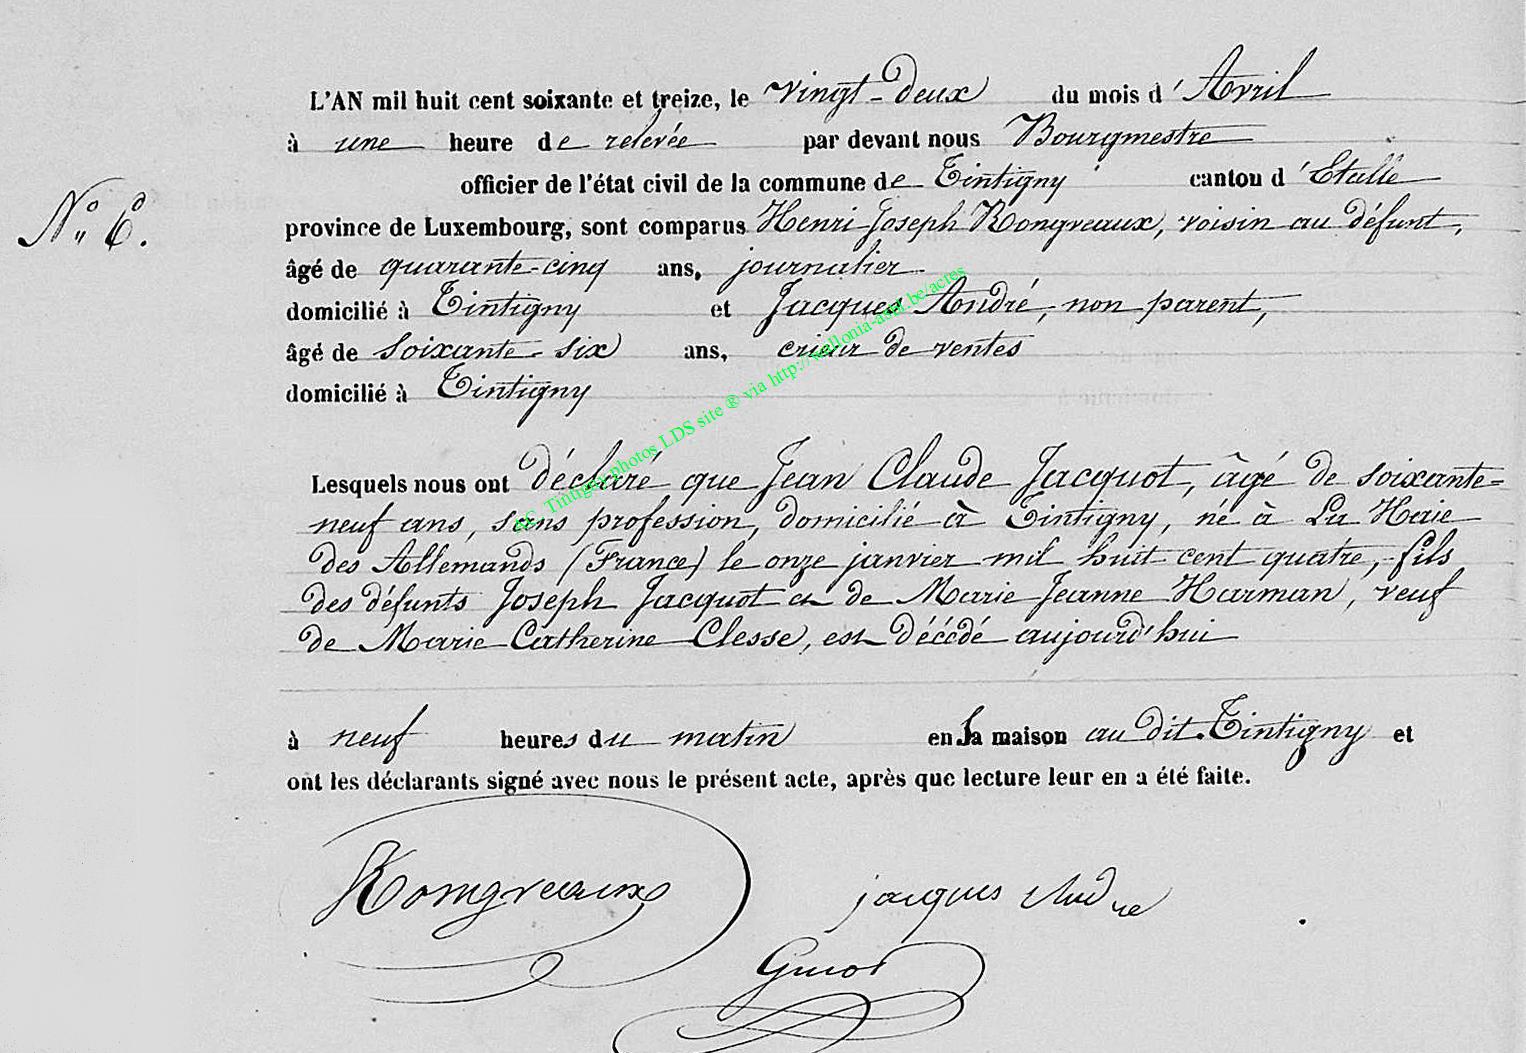 L'AN mil huit cent soixante et treize, le vingt-deux du mois d'Avril
à une heure de relevée par devant nous Bourgmestre
officier de l'état civil de la commune de Tintigny canton d'Etalle
N° 6.
province de Luxembourg, sont comparus Henri Joseph Rongveaux, voisin au défunt,
âgé de quarante-cinq ans, journalier
domicilié à Tintigny et Jacques André, non parent,
âgé de soixante-six ans, crieur de ventes
domicilié à Tintigny
AC Tintigny photos LDS site ® via http://wallonia-asbl.be/actes
Lesquels nous ont déclaré que Jean Claude Jacquot, âgé de soixante=
neuf ans, sans profession, domicilié à Tintigny, né à La Haie
des Allemands (France) le onze janvier mil huit cent quatre, fils
des défunts Joseph Jacquot et de Marie Jeanne Harman, veuf
de Marie Catherine Clesse, est décédé aujourd'hui
à neuf heures du matin en sa maison au dit Tintigny et
ont les déclarants signé avec nous le présent acte, après que lecture leur en a été faite.
Rongveaux
jacques André